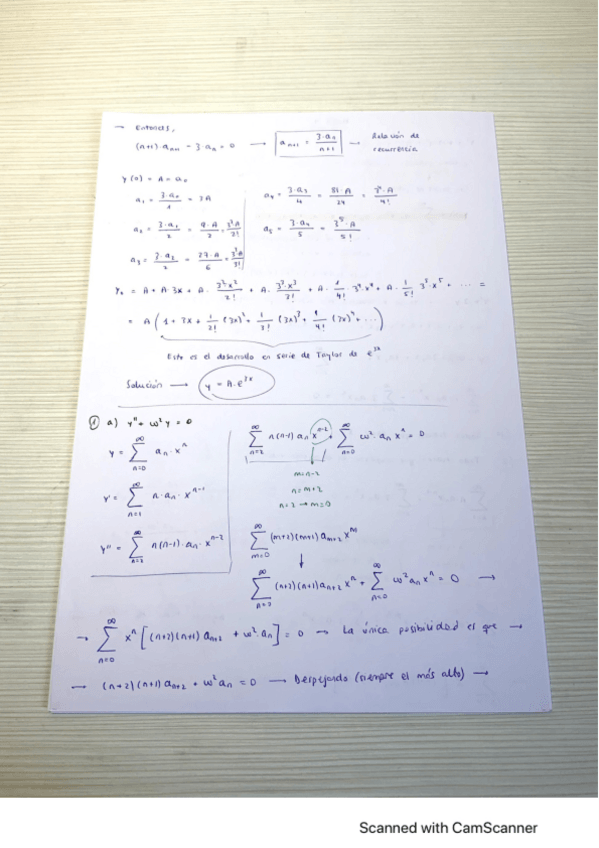 → Entonces,
(n+1)·aₙ₊₁ - 3·aₙ = 0 → aₙ₊₁ = 3·aₙ/(n+1) → Relación de recurrencia
y(0) = A = a₀
a₁ = 3·a₀/1 = 3A
a₂ = 3·a₁/2 = 9·A/2 = 3²A/2!
a₃ = 3·a₂/3 = 27·A/6 = 3³A/3!
a₄ = 3·a₃/4 = 81·A/24 = 3⁴·A/4!
a₅ = 3·a₄/5 = 3⁵·A/5!
= A (1 + 3x + 1/2! (3x)² + 1/3! (3x)³ + 1/4! (3x)⁴ + ...)
Esto es el desarrollo en serie de Taylor de e³ˣ
Solución → y = A·e³ˣ
① a) y'' + ω² y = 0
y = ∑_{n=0}^{∞} aₙ·xⁿ
y' = ∑_{n=1}^{∞} n·aₙ·xⁿ⁻¹
y'' = ∑_{n=2}^{∞} n(n-1)·aₙ·xⁿ⁻²
∑_{n=2}^{∞} n(n-1) aₙ xⁿ⁻² + ∑_{n=0}^{∞} ω²·aₙ xⁿ = 0
m=n-2
n=m+2
n=2 → m=0
∑_{m=0}^{∞} (m+2)(m+1) aₘ₊₂ xᵐ
∑_{n=0}^{∞} (n+2)(n+1) aₙ₊₂ xⁿ + ∑_{n=0}^{∞} ω² aₙ xⁿ = 0 →
→ ∑_{n=0}^{∞} xⁿ [(n+2)(n+1) aₙ₊₂ + ω²·aₙ] = 0 → La única posibilidad es que →
→ (n+2)(n+1) aₙ₊₂ + ω² aₙ = 0 → Despejando (siempre el más alto) →
Scanned with CamScanner